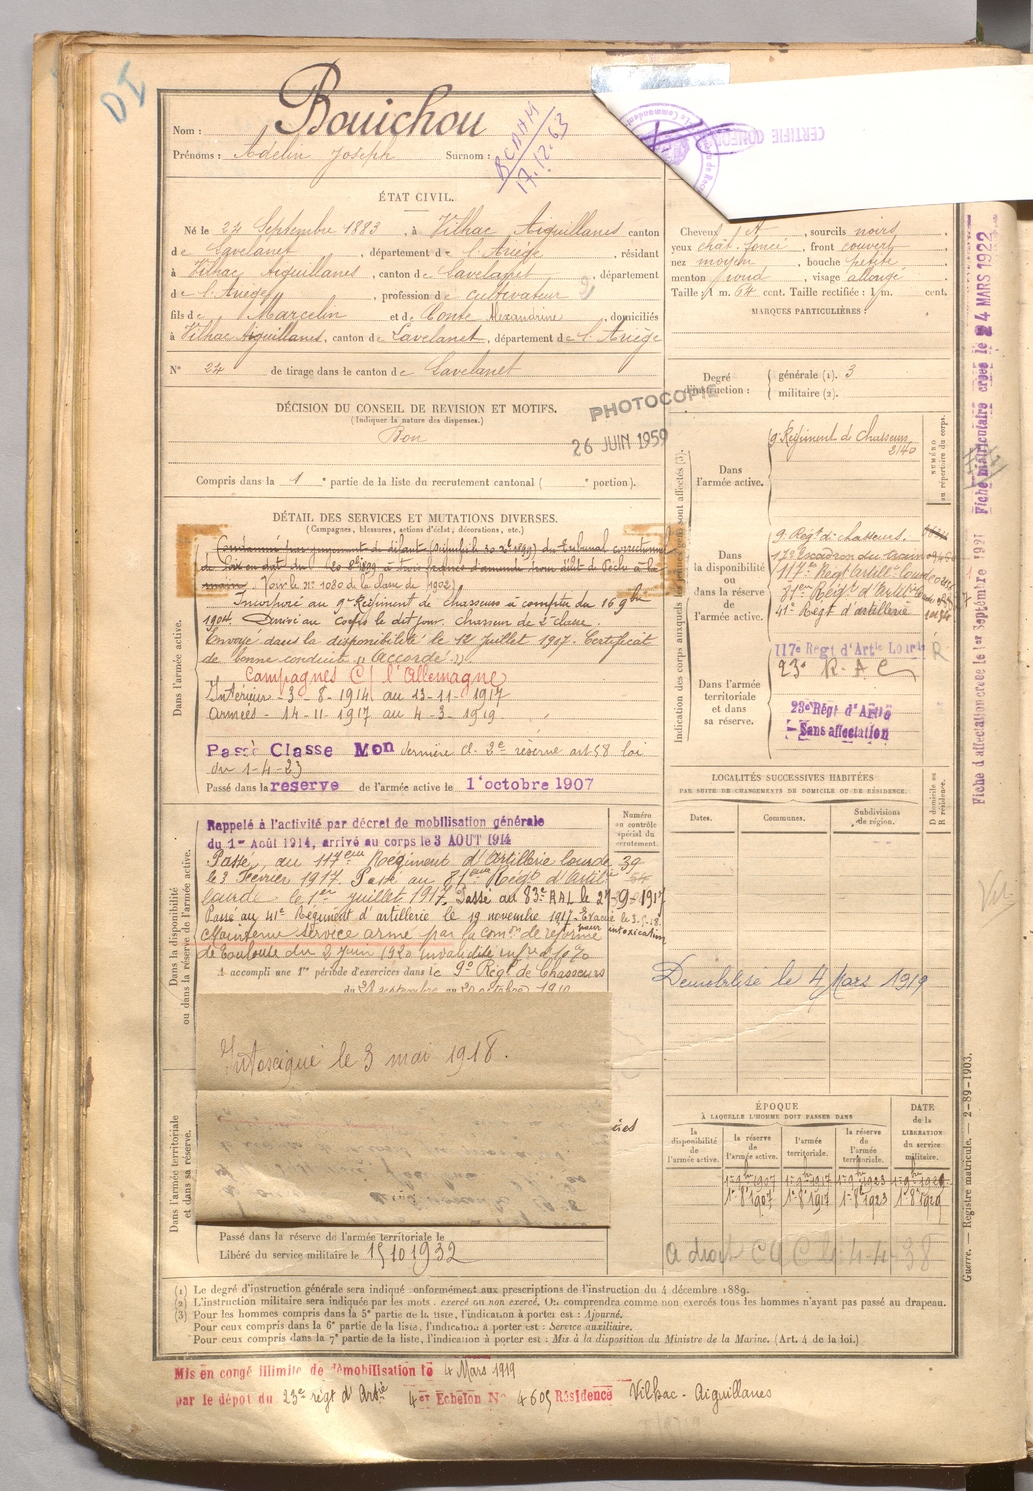 DI
Nom : Bouichou
Prénoms : Adelin Joseph Surnom :
BCAAM
17.12.63
CERTIFIÉ CONFOR
ÉTAT CIVIL.
Né le 27 Septembre 1883, à Vilhac Aiguillanes canton
de Lavelanet, département de l'Ariège, résidant
à Vilhac Aiguillanes, canton de Lavelanet, département
de l'Ariège, profession de cultivateur
fils de Marcelin et de Conte Alexandrine, domiciliés
à Vilhac Aiguillanes, canton de Lavelanet, département de l'Ariège
N° 24 de tirage dans le canton de Lavelanet
Cheveux, sourcils noirs,
yeux chât. foncé, front couvert,
nez moyen, bouche petite,
menton rond, visage allongé
Taille : 1 m. 64 cent. Taille rectifiée : 1 m. cent.
MARQUES PARTICULIÈRES :
Degré d'instruction : générale (1). 3
militaire (2).
DÉCISION DU CONSEIL DE REVISION ET MOTIFS.
(Indiquer la nature des dispenses.)
Bon
PHOTOCOPIE
26 JUIN 1959
Compris dans la 1e partie de la liste du recrutement cantonal ( e portion).
DÉTAIL DES SERVICES ET MUTATIONS DIVERSES.
(Campagnes, blessures, actions d'éclat, décorations, etc.)
Condamné par jugement de défaut du tribunal correctionnel
de Foix à trois francs d'amende pour délit de Pêche à la
main. (Voir le n° 1080 de la classe de 1902)
Dans l'armée active.
Incorporé au 9e Régiment de chasseurs à compter du 16 9bre
1904. Arrivé au corps le dit jour. Chasseur de 2e classe.
Envoyé dans la disponibilité le 12 Juillet 1907. Certificat
de bonne conduite "Accordé".
Campagnes C/ l'Allemagne
Intérieur - 3-8-1914 au 13-11-1917
Armées - 14-11-1917 au 4-3-1919
Passé Classe Mon dernière cl. 2e réserve art 58 loi
du 1-4-23
Passé dans la reserve de l'armée active le 1e octobre 1907
Dans la disponibilité
ou dans la réserve de l'armée active.
Rappelé à l'activité par décret de mobilisation générale
du 1er Août 1914, arrivé au corps le 3 AOUT 1914
Passé au 117eme Régiment d'Artillerie lourde
le 3 Février 1917. Passé au 81eme Régt d'Artil
lourde le 1er juillet 1917. Passé au 83e RAL le 27-9-1917
Passé au 41e Régiment d'artillerie le 19 novembre 1917. Evacué le 3.5.18
pour intoxication
Maintenu service armé par la Comon de réforme
de Toulouse du 2 Juin 1920 invalidité infre à 10%
A accompli une 1re période d'exercices dans le 9e Régt de Chasseurs
Numéro
au contrôle
spécial du
recrutement.
39
54
Intoxiqué le 3 mai 1918.
Dans l'armée territoriale
et dans sa réserve.
Passé dans la réserve de l'armée territoriale le
Libéré du service militaire le 15 10 1932
Indication des corps auxquels les jeunes gens sont affectés (3).
NUMÉRO
au répertoire du corps.
Dans
l'armée active.
9e Régiment de Chasseurs
2140
Dans
la disponibilité
ou
dans la réserve
de
l'armée active.
9e Régt de chasseurs.
117e Régt Artill. lourde
81e Régt d'Artill.
41e Régt d'artillerie
Dans l'armée
territoriale
et dans
sa réserve.
117e Régt d'Artie Lourde
23e R.A.C
23e Régt d'Artie
Sans affectation
R
LOCALITÉS SUCCESSIVES HABITÉES
PAR SUITE DE CHANGEMENTS DE DOMICILE OU DE RÉSIDENCE.
Dates.
Communes.
Subdivisions
de région.
D domicile ou
R résidence.
Démobilisé le 4 Mars 1919
ÉPOQUE
À LAQUELLE L'HOMME DOIT PASSER DANS
la
disponibilité
de
l'armée active.
la réserve
de
l'armée active.
l'armée
territoriale.
la réserve
de
l'armée
territoriale.
DATE
de la
LIBÉRATION
du service
militaire.
1er 8e 1907 1er 8e 1917 1er 8e 1923 1er 8e 1929
A droit CC le 4-4-38
(1) Le degré d'instruction générale sera indiqué conformément aux prescriptions de l'instruction du 4 décembre 1889.
(2) L'instruction militaire sera indiquée par les mots : exercé ou non exercé. On comprendra comme non exercés tous les hommes n'ayant pas passé au drapeau.
(3) Pour les hommes compris dans la 5e partie de la liste, l'indication à porter est : Ajourné.
Pour ceux compris dans la 6e partie de la liste, l'indication à porter est : Service auxiliaire.
Pour ceux compris dans la 7e partie de la liste, l'indication à porter est : Mis à la disposition du Ministre de la Marine. (Art. 4 de la loi.)
Mis en congé illimité de démobilisation le 4 Mars 1919
par le dépôt du 23e régt d'Artie 4er Echelon N° 4605 Résidence Vilhac-Aiguillanes
Fiche d'affectation créée le 1er Septembre 1921
Fiche matriculaire créée le 24 MARS 1922
Guerre. — Registre matricule. — 2-89-1903.